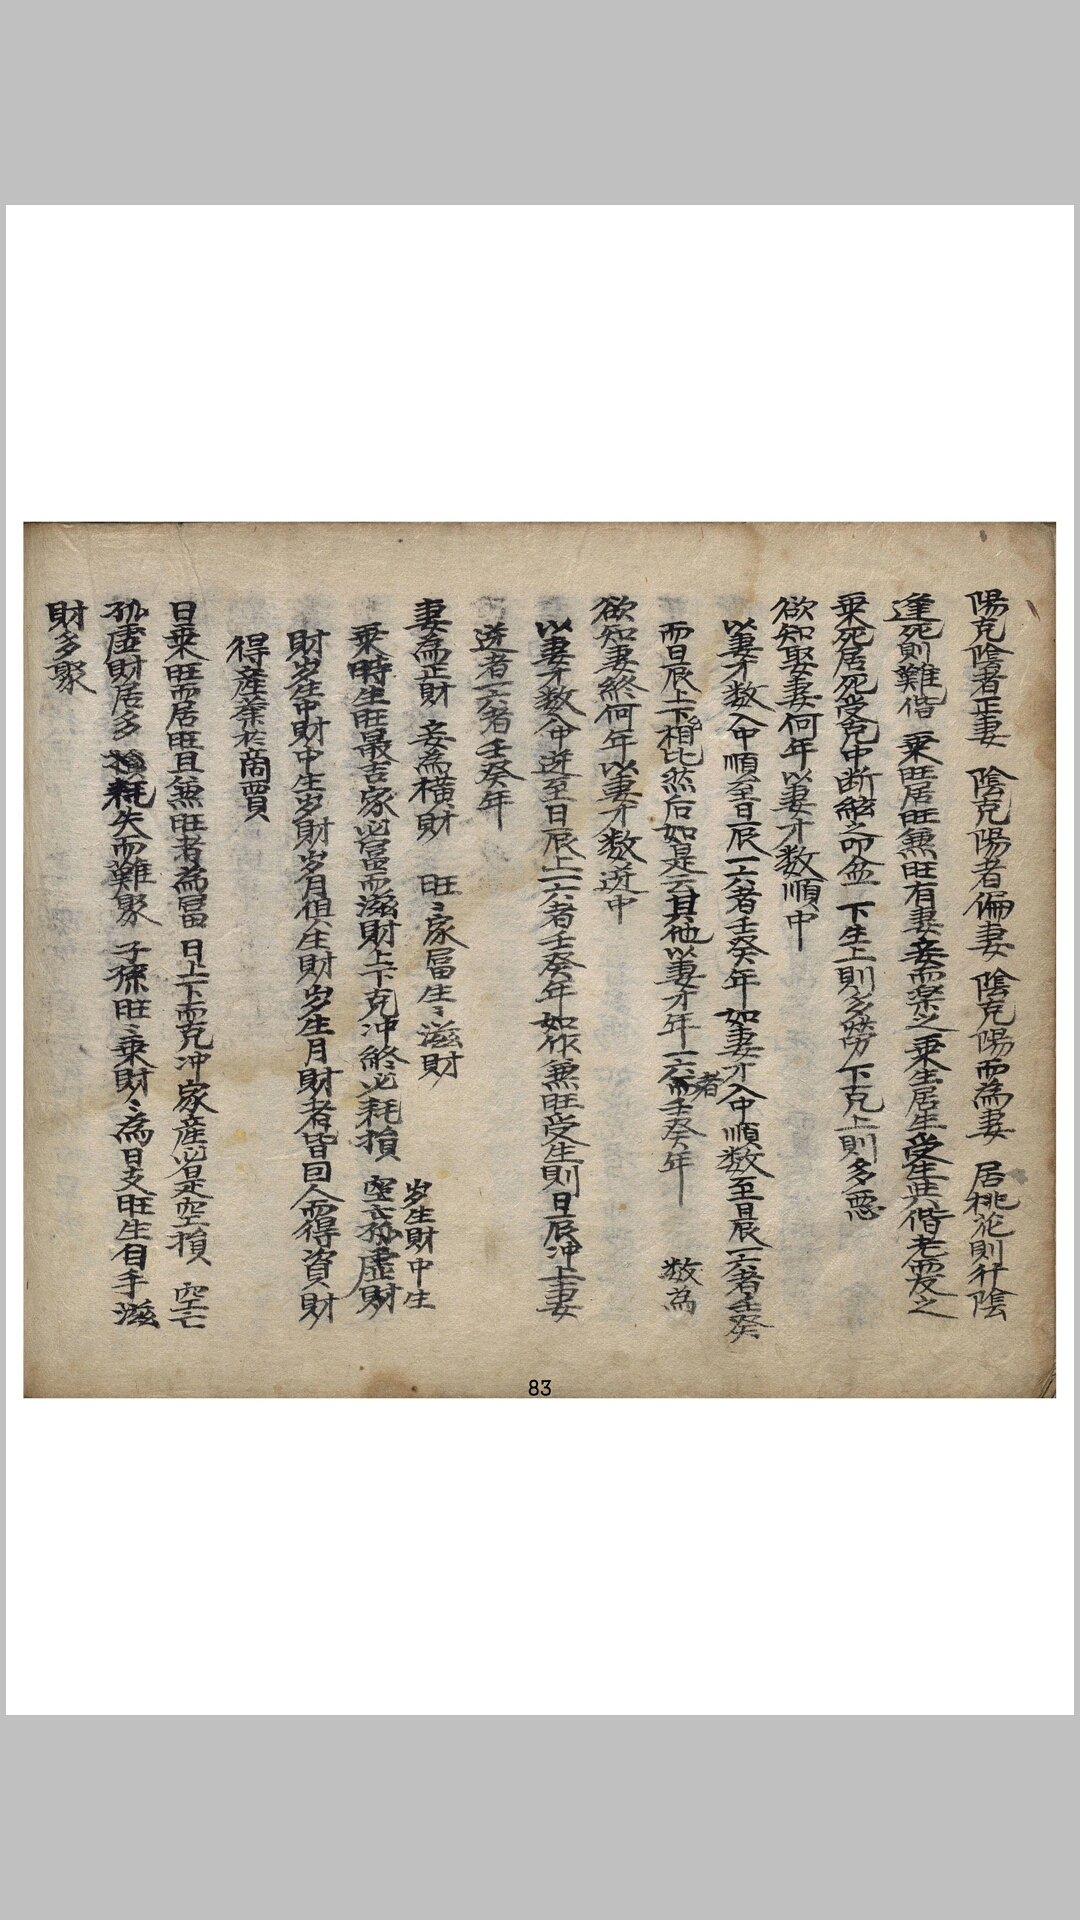 陽克陰者正妻 陰克陽者偏妻 陰克陽而為妻 居桃花則行陰
逢死則難偕 乘旺居旺無旺有妻妾而樂之 乘生居生受生共偕老而愛之
乘死居死受克中断絃之叩盆 下生上則多勞 下克上則多惡
欲知娶妻何年以妻才数順中
以妻才数入中順至日辰一六者壬癸年 如妻才入中順数至日辰一六者壬癸
而日辰上下相比然后如是云其他以妻才年一六者壬癸年 数為
欲知妻終何年以妻才数逆中
以妻才数入中逆至日辰上一六者壬癸年如作無旺受生則日辰冲上妻
逆者一六者壬癸年
妻為正財 妾為横財 旺〻家富生〻滋財 岁生財中生
乘時生旺最吉家必富而滋財上下克冲終必耗損 空亡孤虛財
財岁生中財中生岁財岁月俱生財岁生月財者皆因人而得資財
得産業於商賈
日乘旺而居旺且無旺者為富 日上下而克冲家産必是空損 空亡
孤虛財居多 損耗失而難聚 子孫旺〻乘財〻為日支旺生自手滋
財多聚
83